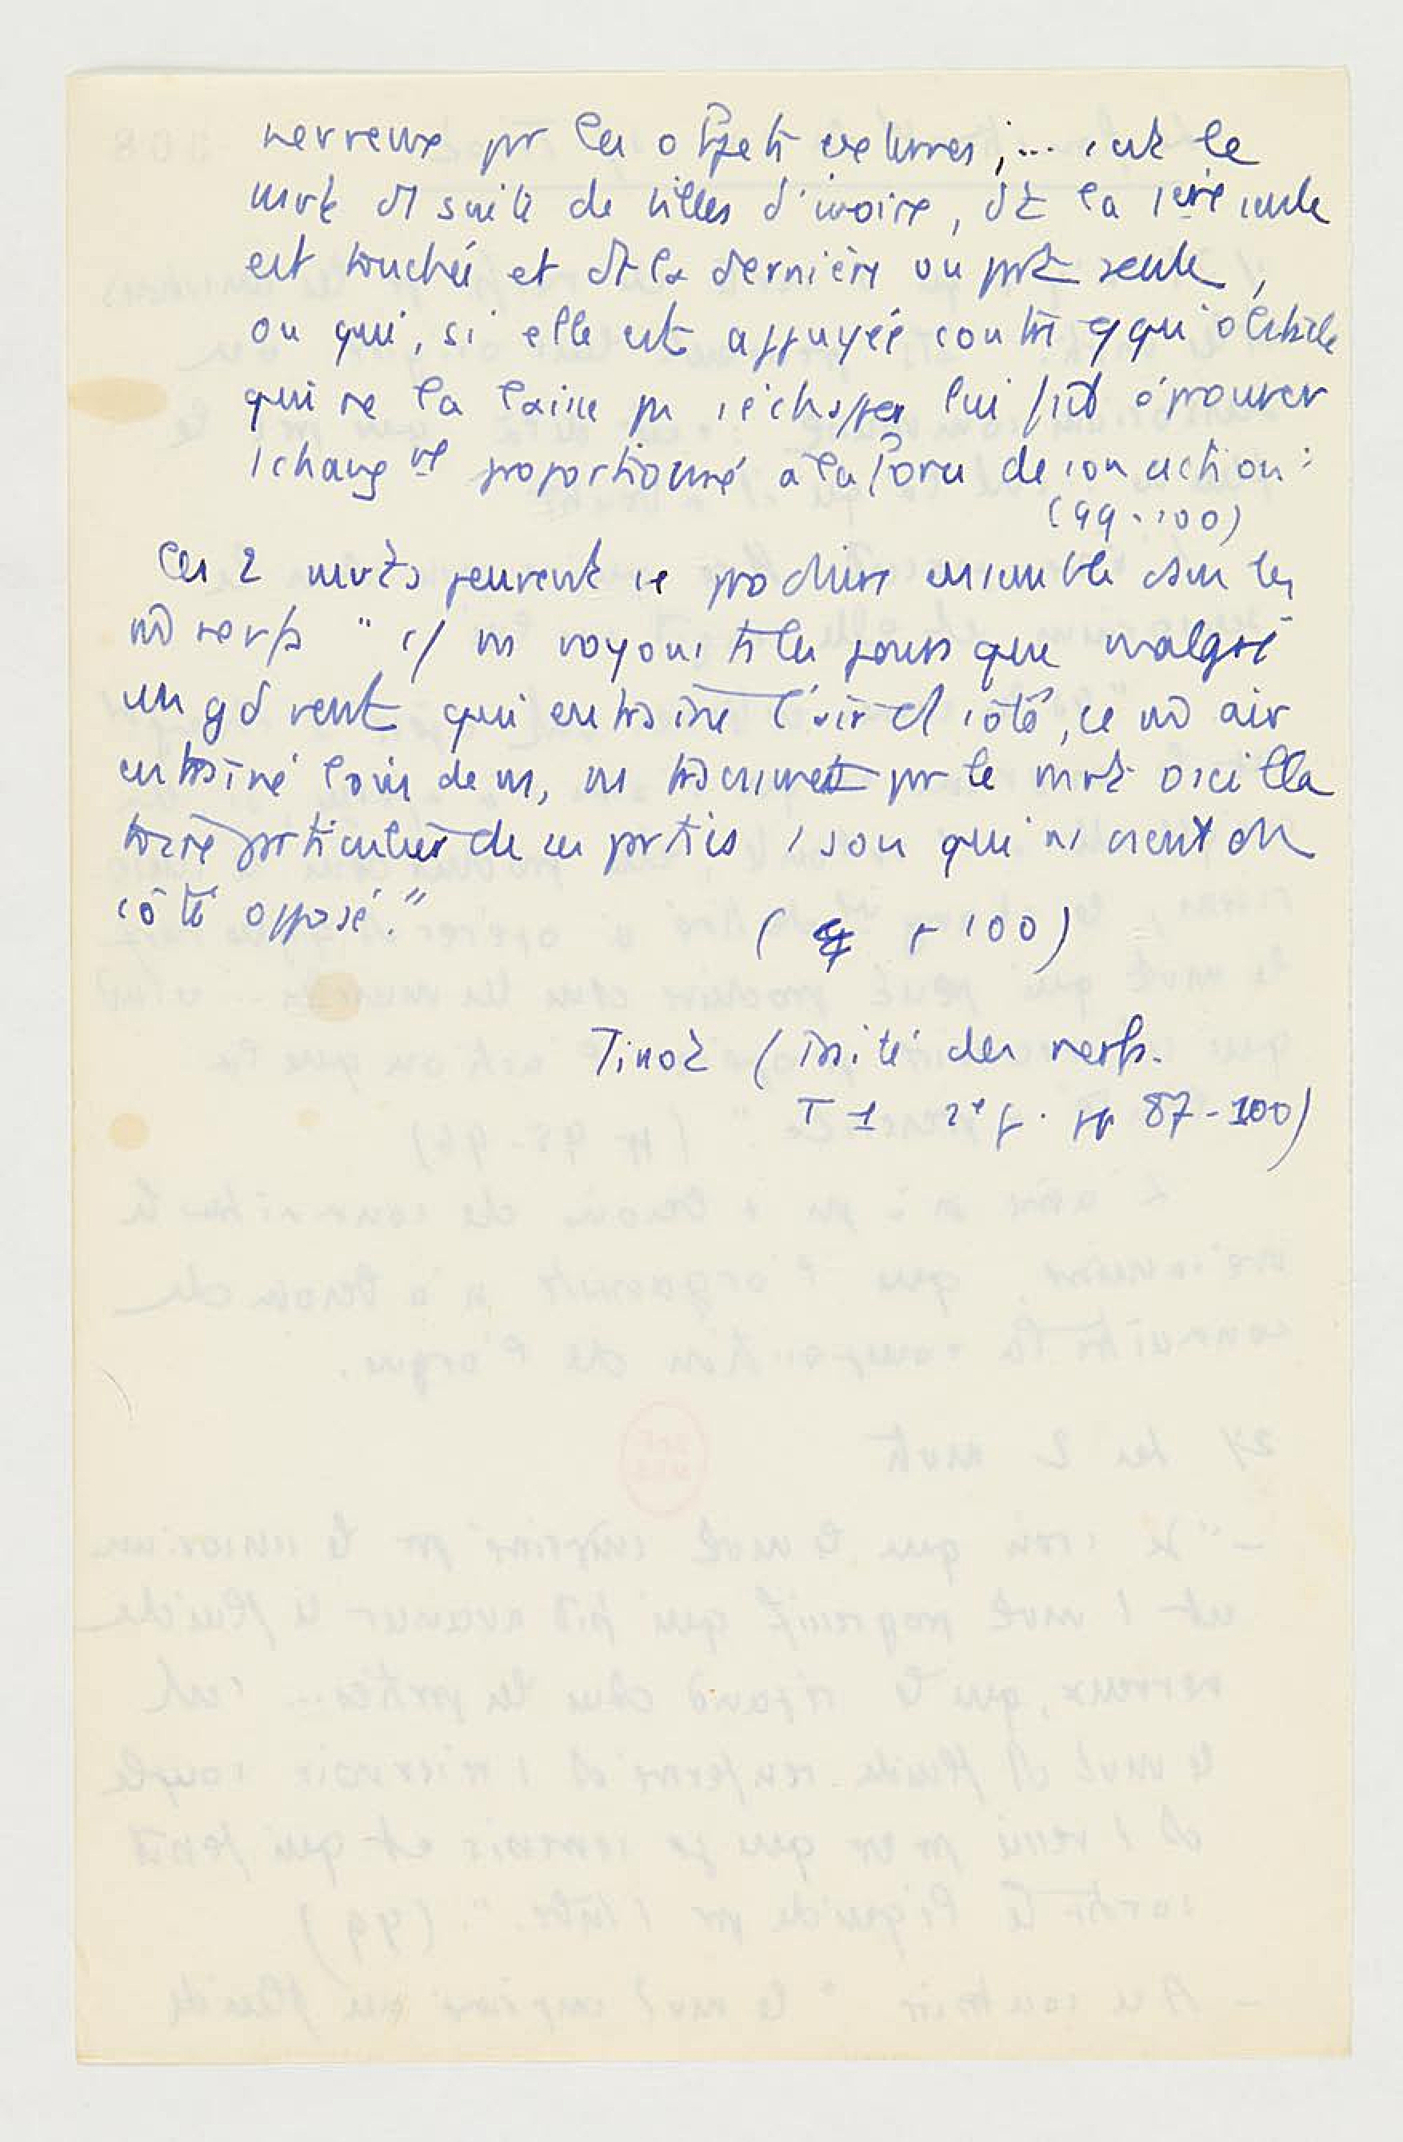 nerveux par les objets externes; ... c'est le
mvt d suite de billes d'ivoire, dt la 1ère seule
est touchée et dt la dernière se part seule,
ou qui, si elle est appuyée contre qqu'obstacle
qui ne la laisse pas s'échapper lui fait éprouver
1 changt proportionné à la force de son action:
(99-100)
Ces 2 mvts peuvent se produire ensemble dans les
m̄ nerfs " c/ ns voyons ts les jours que malgré
un gd vent qui entraîne l'air d'1 côté, ce m̄ air
entraîné loin de ns, ns transmet par le mvt oscilla
toire particulier de ses parties 1 son qui ns vient du
côté opposé."
(p 100)
Tissot (traité des nerfs.
T 1 2e p. pp 87-100)